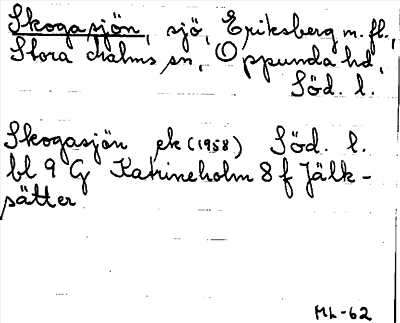 Skogasjön, sjö, Eriksberg m. fl.,
Stora Malms sn, Oppunda hd,
Söd. l.
Skogasjön ek (1958) Söd. l.
bl 9 G Katrineholm 8 f Jälk-
sätter
ML-62